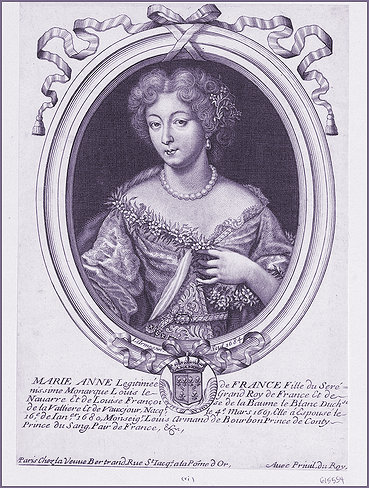 1684
MARIE ANNE Legitimée de FRANCE Fille du Seré-
nissime Monarque Louis le Grand Roy de France Et de
Navarre Et de Louise François se de la Baume le Blanc Duch.e
de la Valliere Et de Vaucjour. Nacq.t le 4.e Mars Elle a Espouse le
16.e de Ian.er 1680. Monseig.r Louis Armand de Bourbon Prince de Conty
Prince du Sang, Pair de France, &ca,
Paris Chez la Veuve Bertrand, Rue St. Iacq. a la Pome d'Or, Avec Privil. du Roy.
(vi) 615559